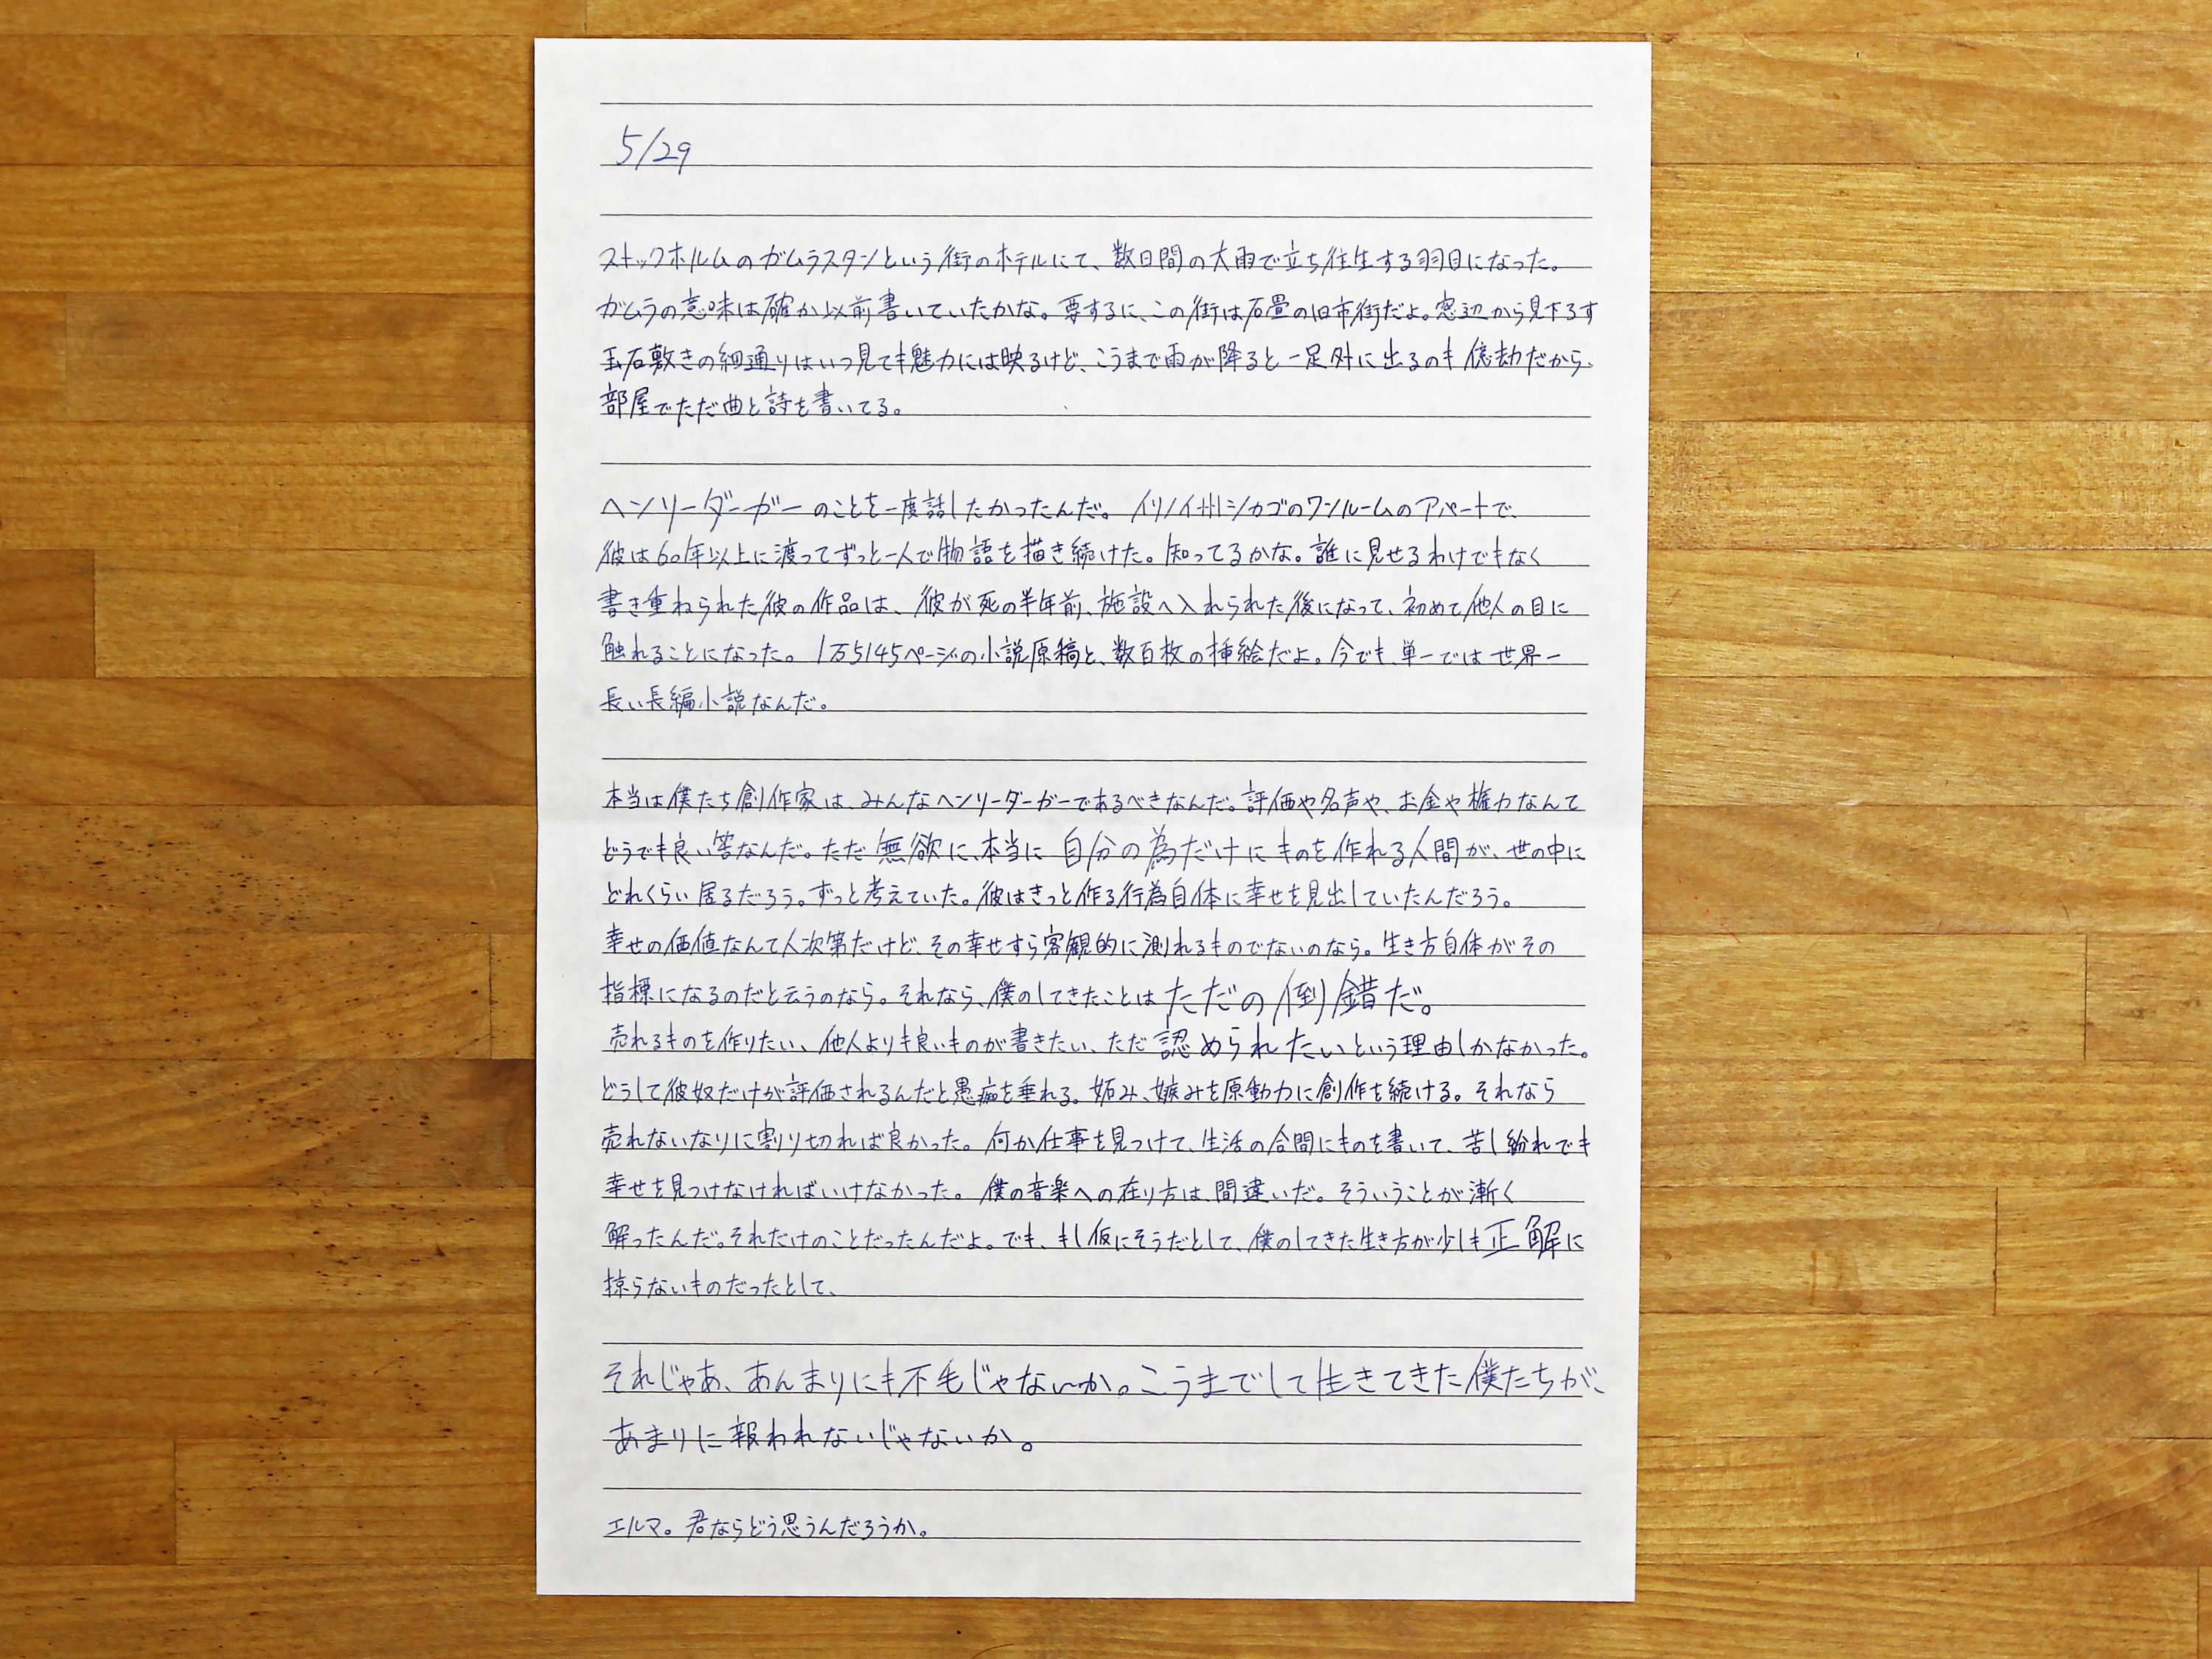 5/29
ストックホルムのガムラスタンという街のホテルにて、数日間の大雨で立ち往生する羽目になった。
ガムラの意味は確か以前書いていたかな。要するに、この街は石畳の旧市街だよ。窓辺から見下ろす
玉石敷きの細通りはいつ見ても魅力には映るけど、こうまで雨が降ると一足外に出るのも億劫だから、
部屋でただ曲と詩を書いてる。
ヘンリーダーガーのことを一度話したかったんだ。イリノイ州シカゴのワンルームのアパートで、
彼は60年以上に渡ってずっと一人で物語を描き続けた。知ってるかな。誰に見せるわけでもなく
書き重ねられた彼の作品は、彼が死の半年前、施設へ入れられた後になって、初めて他人の目に
触れることになった。1万5145ページの小説原稿と、数百枚の挿絵だよ。今でも、単一では世界一
長い長編小説なんだ。
本当は僕たち創作家は、みんなヘンリーダーガーであるべきなんだ。評価や名声や、お金や権力なんて
どうでも良い筈なんだ。ただ無欲に、本当に自分の為だけにものを作れる人間が、世の中に
どれくらい居るだろう。ずっと考えていた。彼はきっと作る行為自体に幸せを見出していたんだろう。
幸せの価値なんて人次第だけど、その幸せすら客観的に測れるものでないのなら。生き方自体がその
指標になるのだと云うのなら。それなら、僕のしてきたことはただの倒錯だ。
売れるものを作りたい、他人よりも良いものが書きたい、ただ認められたいという理由しかなかった。
どうして彼奴だけが評価されるんだと愚痴を垂れる。妬み、嫉みを原動力に創作を続ける。それなら
売れないなりに割り切れば良かった。何か仕事を見つけて、生活の合間にものを書いて、苦し紛れでも
幸せを見つけなければいけなかった。僕の音楽への在り方は、間違いだ。そういうことが漸く
解ったんだ。それだけのことだったんだよ。でも、もし仮にそうだとして、僕のしてきた生き方が少しも正解に
掠らないものだったとして、
それじゃあ、あんまりにも不毛じゃないか。こうまでして生きてきた僕たちが、
あまりに報われないじゃないか。
エルマ。君ならどう思うんだろうか。